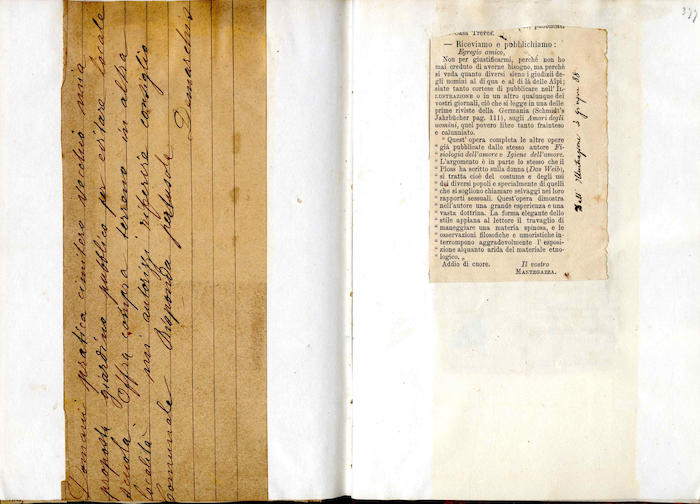 Domani pratica cimitero vecchio mia
proposta giardino pubblico per evitare locale
scuola Offra compra terreno in altra
località mi autorizzi riferire consiglio
comunale Risponda Demarchi
377
Casa Treves.
— Riceviamo e pubblichiamo:
Egregio amico,
Non per giustificarmi, perchè non ho
mai creduto di averne bisogno, ma perchè
si veda quanto diversi sieno i giudizii de-
gli uomini al di qua e al di là delle Alpi;
siate tanto cortese di pubblicare nell' IL-
LUSTRAZIONE o in un altro qualunque dei
vostri giornali, ciò che si legge in una delle
prime riviste della Germania (Schmidt's
Jahrbücher pag. 111), sugli Amori degli
uomini, quel povero libro tanto frainteso
e calunniato.
" Quest' opera completa le altre opere
" già pubblicate dallo stesso autore Fi-
" siologia dell'amore e Igiene dell'amore.
" L'argomento è in parte lo stesso che il
" Ploss ha scritto sulla donna (Das Weib),
" si tratta cioè del costume e degli usi
" dei diversi popoli e specialmente di quelli
" che si sogliono chiamare selvaggi nei loro
" rapporti sessuali. Quest'opera dimostra
" nell'autore una grande esperienza e una
" vasta dottrina. La forma elegante dello
" stile appiana al lettore il travaglio di
" maneggiare una materia spinosa, e le
" osservazioni filosofiche e umoristiche in-
" terrompono aggradevolmente l' esposi-
" zione alquanto arida del materiale etno-
" logico. „
Addio di cuore. Il vostro
MANTEGAZZA.
Dell' Illustrazione 3 giugno 88